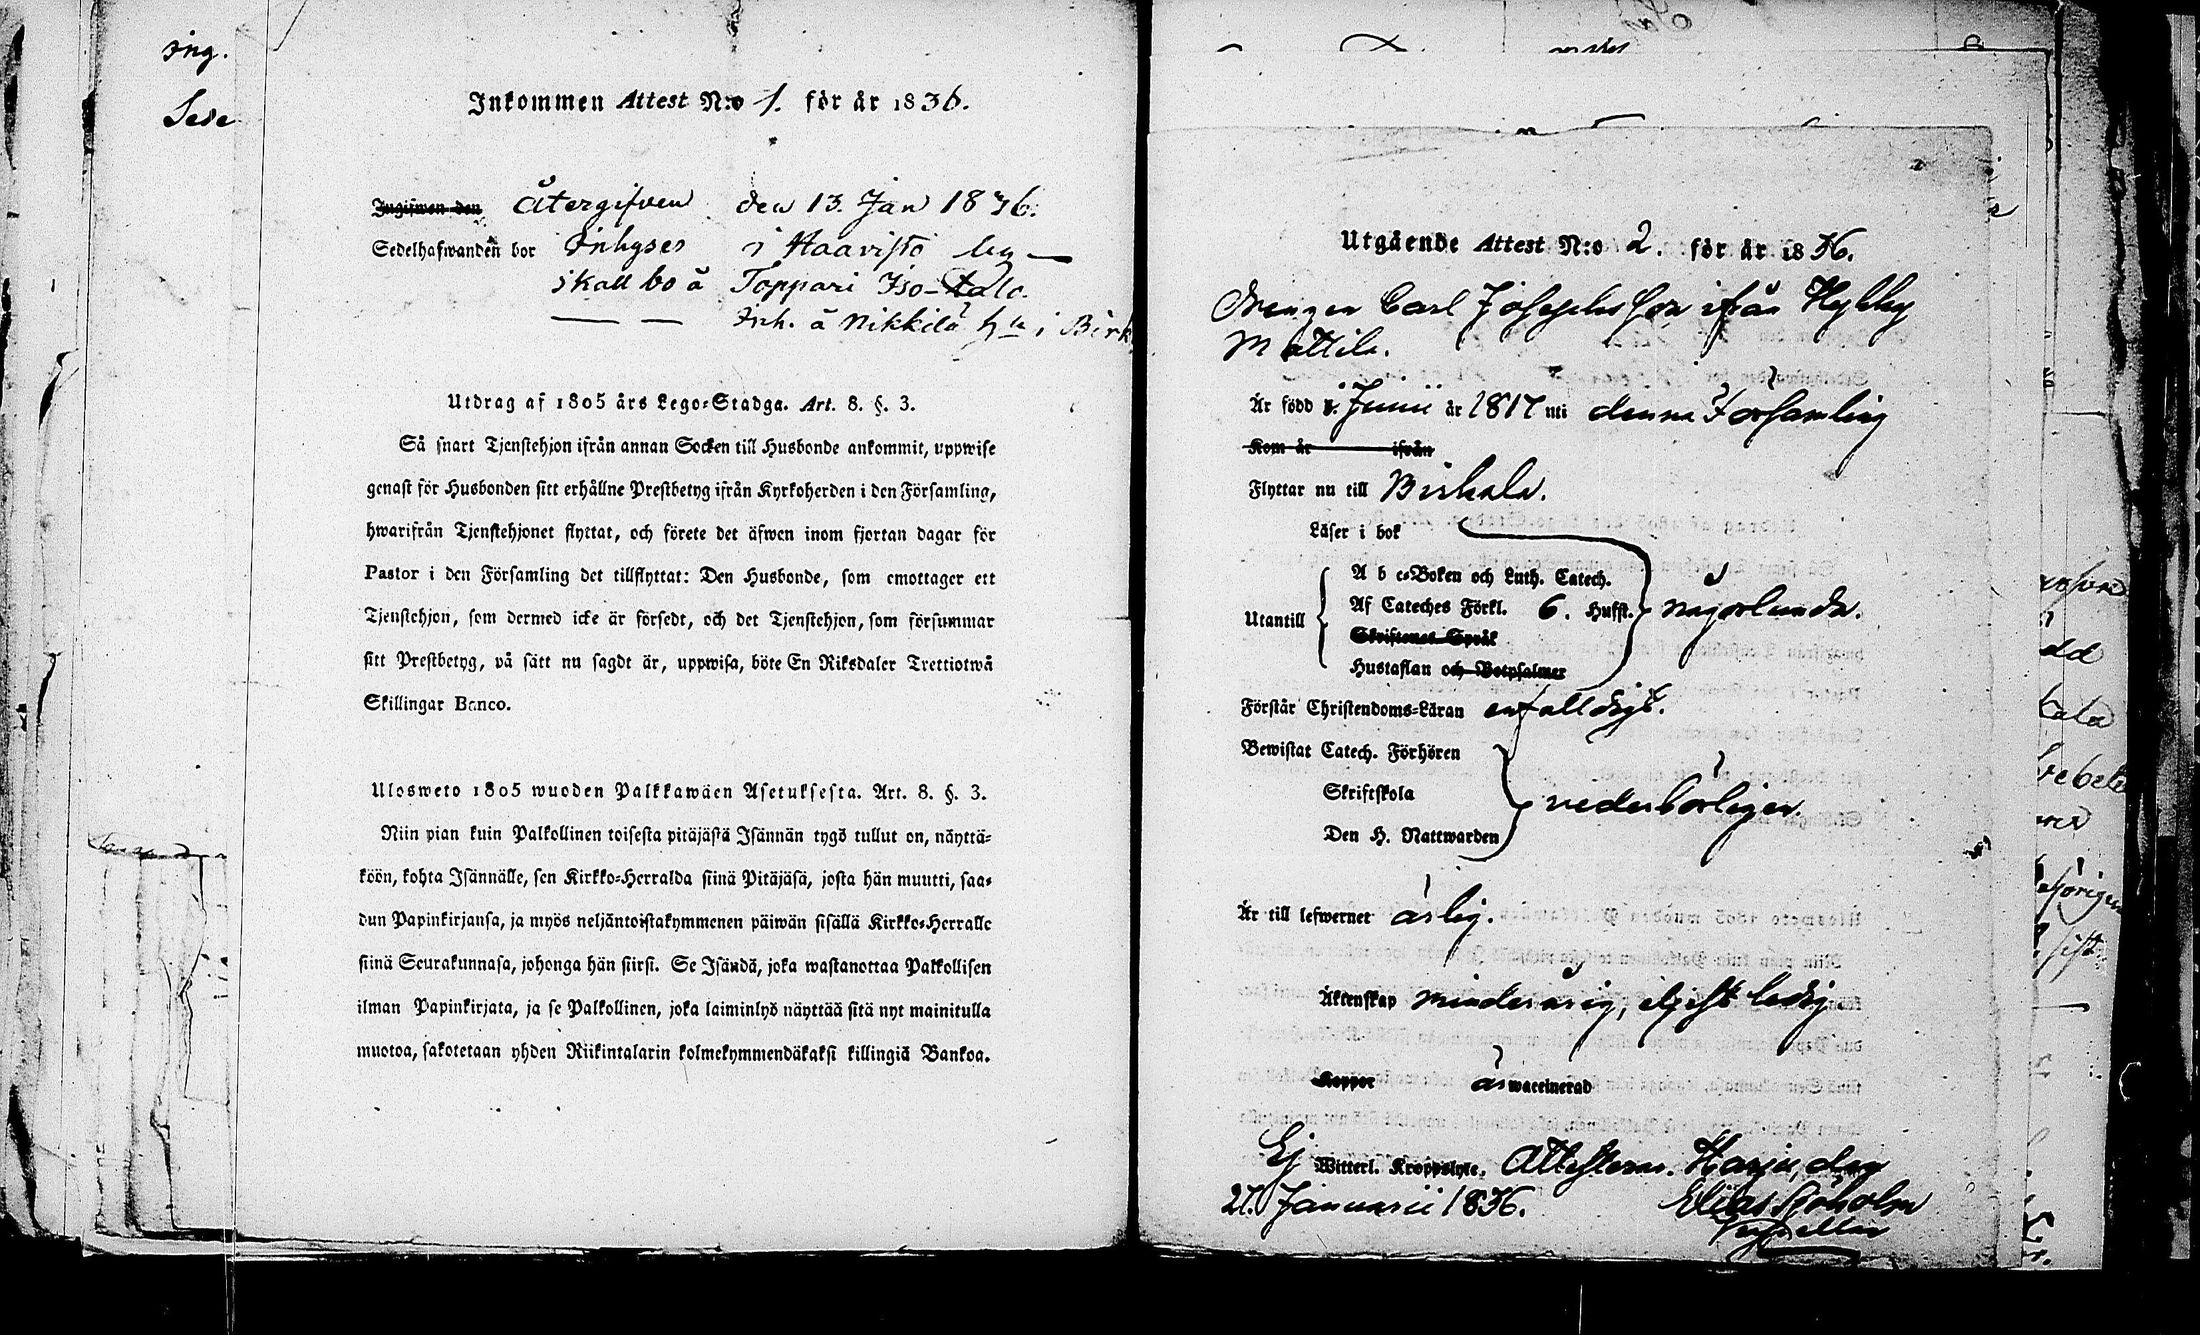 ing.
Sede
Inkommen Attest N:o 1. för år 1836.
Ingifwen den Återgifven den 13. Jan 1836.
Sedelhafwanden bor Inhyses i Haavisto by
skall bo å Toppari Iso-talo.
Inh. å Nikkilä i Birk
Utdrag af 1805 års Lego-Stadga. Art. 8. §. 3.
Så snart Tjenstehjon ifrån annan Socken till Husbonde ankommit, uppwise
genast för Husbonden sitt erhållne Prestbetyg ifrån Kyrkoherden i den Församling,
hwarifrån Tjenstehjonet flyttat, och förete det äfwen inom fjortan dagar för
Pastor i den Församling det tillflyttat: Den Husbonde, som emottager ett
Tjenstehjon, som dermed icke är försedt, och det Tjenstehjon, som försummar
sitt Prestbetyg, på sätt nu sagdt är, uppwisa, böte En Riksdaler Trettiotwå
Skillingar Banco.
Ulosweto 1805 wuoden Palkkawäen Asetuksesta. Art. 8. §. 3.
Niin pian kuin Palkollinen toisesta pitäjästä Isännän tygö tullut on, näyttä-
köön, kohta Isännälle, sen Kirkko-Herralda siinä Pitäjäsä, josta hän muutti, saa-
dun Papinkirjansa, ja myös neljäntoistakymmenen päiwän sisällä Kirkko-Herralle
siinä Seurakunnasa, johonga hän siirsi. Se Isändä, joka wastanottaa Palkollisen
ilman Papinkirjata, ja se Palkollinen, joka laiminlyö näyttää sitä nyt mainitulla
muotoa, sakotetaan yhden Riikintalarin kolmekymmendäkaksi killingiä Bankoa.
Utgående Attest N:o 2. för år 1836.
Drengen Carl Josephsson ifrån Hyhky
Mattila.
Är född i Junii år 1817 uti denna Församling
Kom år ifrån
Flyttar nu till Birkala.
Läser i bok
A b c-Boken och Luth. Catech.
Af Cateches Förkl. 6. Hufst. någorlunda.
Utantill
Skriftenes Språk
Hustaflan och Botpsalmer
Förstår Christendoms-Läran enfaldigt.
Bewistat Catech. Förhören
Skriftskola
vederbörligen.
Den H. Nattwarden
Är till lefwernet ärlig.
Äktenskap minderårig, eljest ledig.
Koppor är waccinerad
Ej Witterl. Kroppslyte. Attesteras. Harju, den
21. Januarii 1836. Elias